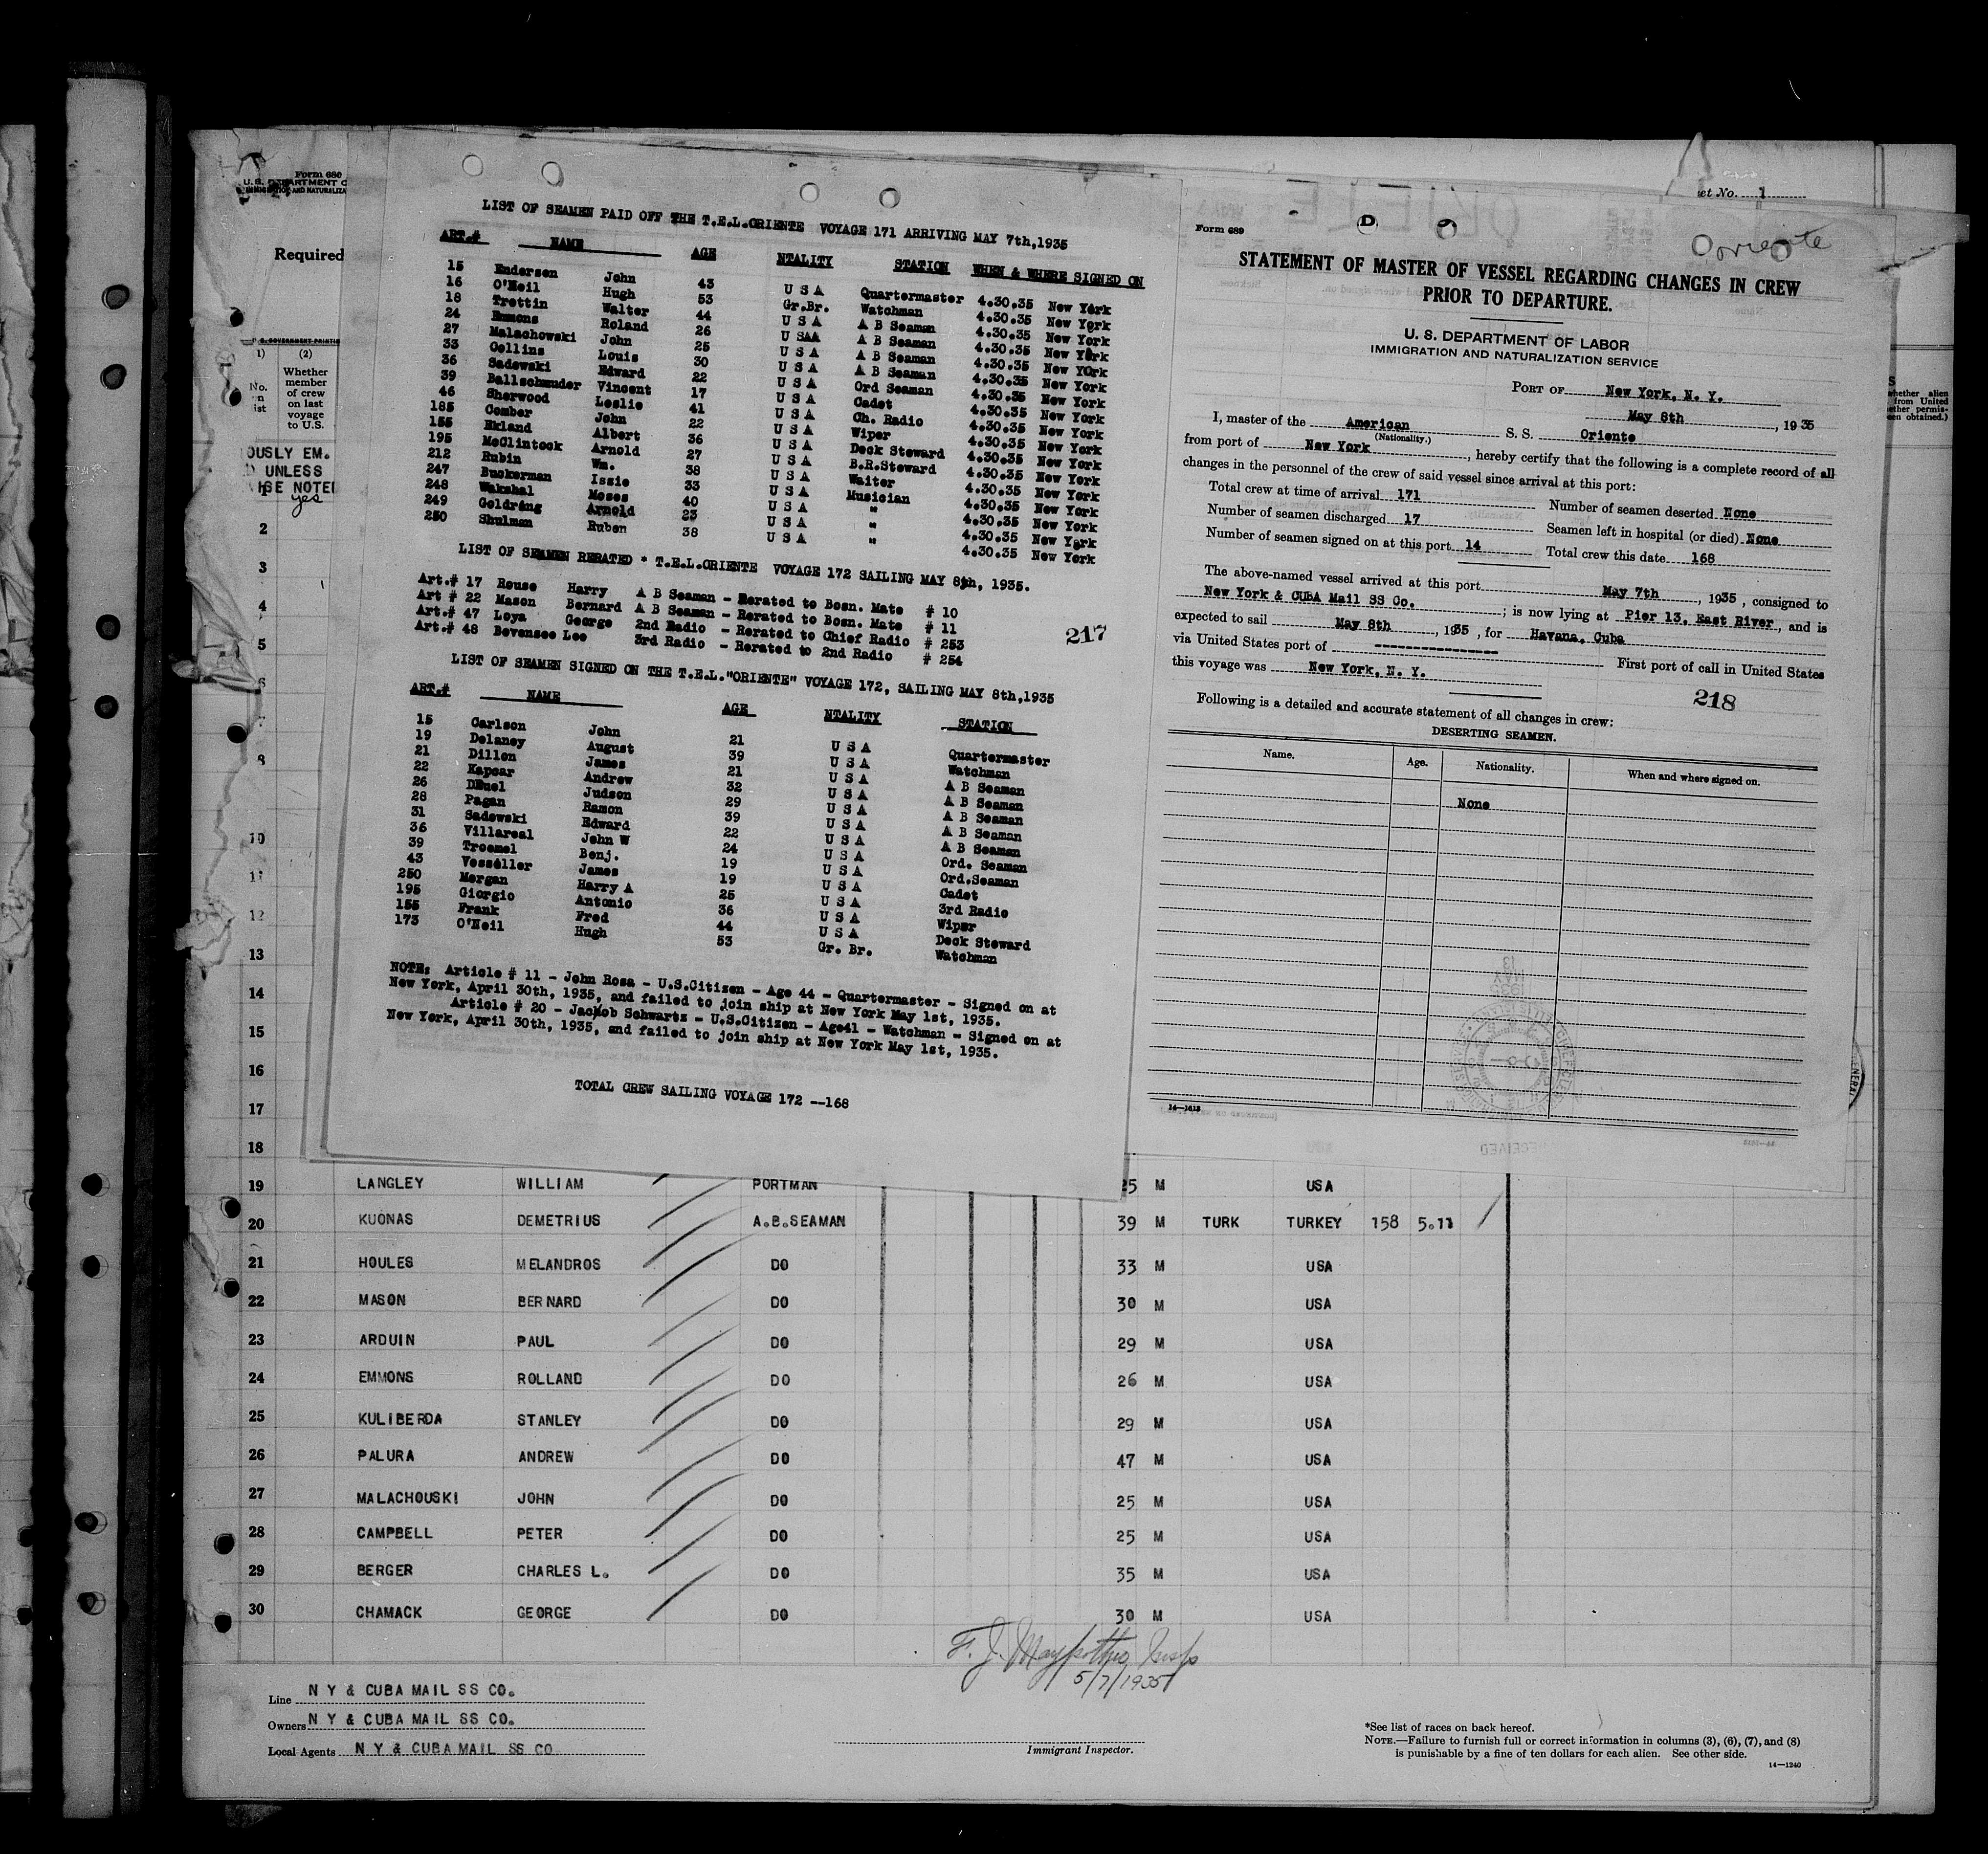 Form 680
U. S. DEPARTMENT O
IMMIGRATION AND NATURALIZA
Required
1) (2)
No. Whether
on member
ist of crew
on last
voyage
to U.S.
OUSLY EM.
D UNLESS
ISE NOTE
1 yes
LIST OF SEAMEN PAID OFF THE T.E.L.ORIENTE VOYAGE 171 ARRIVING MAY 7th,1935
ART.# NAME AGE NTALITY STATION WHEN & WHERE SIGNED ON
15 Endersen John 43 U S A Quartermaster 4.30.35 New York
16 O'Neil Hugh 53 Gr.Br. Watchman 4.30.35 New York
18 Trettin Walter 44 U S A A B Seaman 4.30.35 New York
24 Emmons Roland 26 U SAA A B Seaman 4.30.35 New York
27 Malachowski John 25 U S A A B Seaman 4.30.35 New York
33 Collins Louis 30 U S A A B Seaman 4.30.35 New York
36 Sadowski Edward 22 U S A Ord Seaman 4.30.35 New York
39 Ballschmuder Vincent 17 U S A Cadet 4.30.35 New York
46 Sherwood Leslie 41 U S A Ch. Radio 4.30.35 New York
185 Comber John 22 U S A Wiper 4.30.35 New York
155 Ekland Albert 36 U S A Deck Steward 4.30.35 New York
195 McClintock Arnold 27 U S A B.R.Steward 4.30.35 New York
212 Rubin Wm. 38 U S A Waiter 4.30.35 New York
247 Buckerman Issie 33 U S A Musician 4.30.35 New York
248 Wakshal Moses 40 U S A " 4.30.35 New York
249 Goldring Arnold 23 U S A " 4.30.35 New York
250 Shulman Ruben 38 U S A " 4.30.35 New York
LIST OF SEAMEN RERATED * T.E.L.ORIENTE VOYAGE 172 SAILING MAY 8th, 1935.
Art.# 17 Rouse Harry A B Seaman - Rerated to Bosn. Mate # 10
Art # 22 Mason Bernard A B Seaman - Rerated to Bosn. Mate # 11
Art.# 47 Loya George 2nd Radio - Rerated to Chief Radio # 253
Art.# 48 Bevensee Leo 3rd Radio - Rerated to 2nd Radio # 254
217
LIST OF SEAMEN SIGNED ON THE T.E.L."ORIENTE" VOYAGE 172, SAILING MAY 8th,1935
ART.# NAME AGE NTALITY STATION
15 Carlson John 21 U S A Quartermaster
19 Delaney August 39 U S A Watchman
21 Dillon James 21 U S A A B Seaman
22 Kapsar Andrew 32 U S A A B Seaman
26 Judson 29 U S A A B Seaman
28 Pagan Ramon 39 U S A A B Seaman
31 Sadowski Edward 22 U S A A B Seaman
36 Villareal John W 24 U S A Ord. Seaman
39 Troemel Benj. 19 U S A Ord.Seaman
43 Vesseller James 19 U S A Cadet
250 Morgan Harry A 25 U S A 3rd Radio
195 Giorgio Antonio 36 U S A Wiper
155 Frank Fred 44 U S A Deck Steward
173 O'Neil Hugh 53 Gr. Br. Watchman
NOTE: Article # 11 - John Rosa - U.S.Citizen - Age 44 - Quartermaster - Signed on at
New York, April 30th, 1935, and failed to join ship at New York May 1st, 1935.
Article # 20 - Jackob Schwartz - U.S.Citizen - Age41 - Watchman - Signed on at
New York, April 30th, 1935, and failed to join ship at New York May 1st, 1935.
TOTAL CREW SAILING VOYAGE 172 --168
et No. 1
Form 689
D
Oriente
STATEMENT OF MASTER OF VESSEL REGARDING CHANGES IN CREW
PRIOR TO DEPARTURE.
U. S. DEPARTMENT OF LABOR
IMMIGRATION AND NATURALIZATION SERVICE
PORT OF New York, N. Y.
May 8th, 1935
I, master of the American S. S. Oriente
(Nationality.)
from port of New York, hereby certify that the following is a complete record of all
changes in the personnel of the crew of said vessel since arrival at this port:
Total crew at time of arrival 171 Number of seamen deserted None
Number of seamen discharged 17 Seamen left in hospital (or died) None
Number of seamen signed on at this port 14 Total crew this date 168
The above-named vessel arrived at this port May 7th, 1935, consigned to
New York & CUBA Mail SS Co.; is now lying at Pier 13, East River, and is
expected to sail May 8th, 1935, for Havana, Cuba
via United States port of ---------------- First port of call in United States
this voyage was New York, N. Y.
218
Following is a detailed and accurate statement of all changes in crew:
DESERTING SEAMEN.
Name. Age. Nationality. When and where signed on.
None
14—1618
whether alien
from United
ther permis-
een obtained.)
2
3
4
5
6
7
8
10
11
12
13
14
15
16
17
18
19 LANGLEY WILLIAM PORTMAN 25 M USA
20 KUONAS DEMETRIUS A.B.SEAMAN 39 M TURK TURKEY 158 5.11
21 HOULES MELANDROS DO 33 M USA
22 MASON BERNARD DO 30 M USA
23 ARDUIN PAUL DO 29 M USA
24 EMMONS ROLLAND DO 26 M USA
25 KULIBERDA STANLEY DO 29 M USA
26 PALURA ANDREW DO 47 M USA
27 MALACHOUSKI JOHN DO 25 M USA
28 CAMPBELL PETER DO 25 M USA
29 BERGER CHARLES L. DO 35 M USA
30 CHAMACK GEORGE DO 30 M USA
5/7/1935
Line N Y & CUBA MAIL SS CO.
Owners N Y & CUBA MAIL SS CO.
Local Agents N Y & CUBA MAIL SS CO
Immigrant Inspector.
*See list of races on back hereof.
NOTE.—Failure to furnish full or correct information in columns (3), (6), (7), and (8)
is punishable by a fine of ten dollars for each alien. See other side.
14—1240